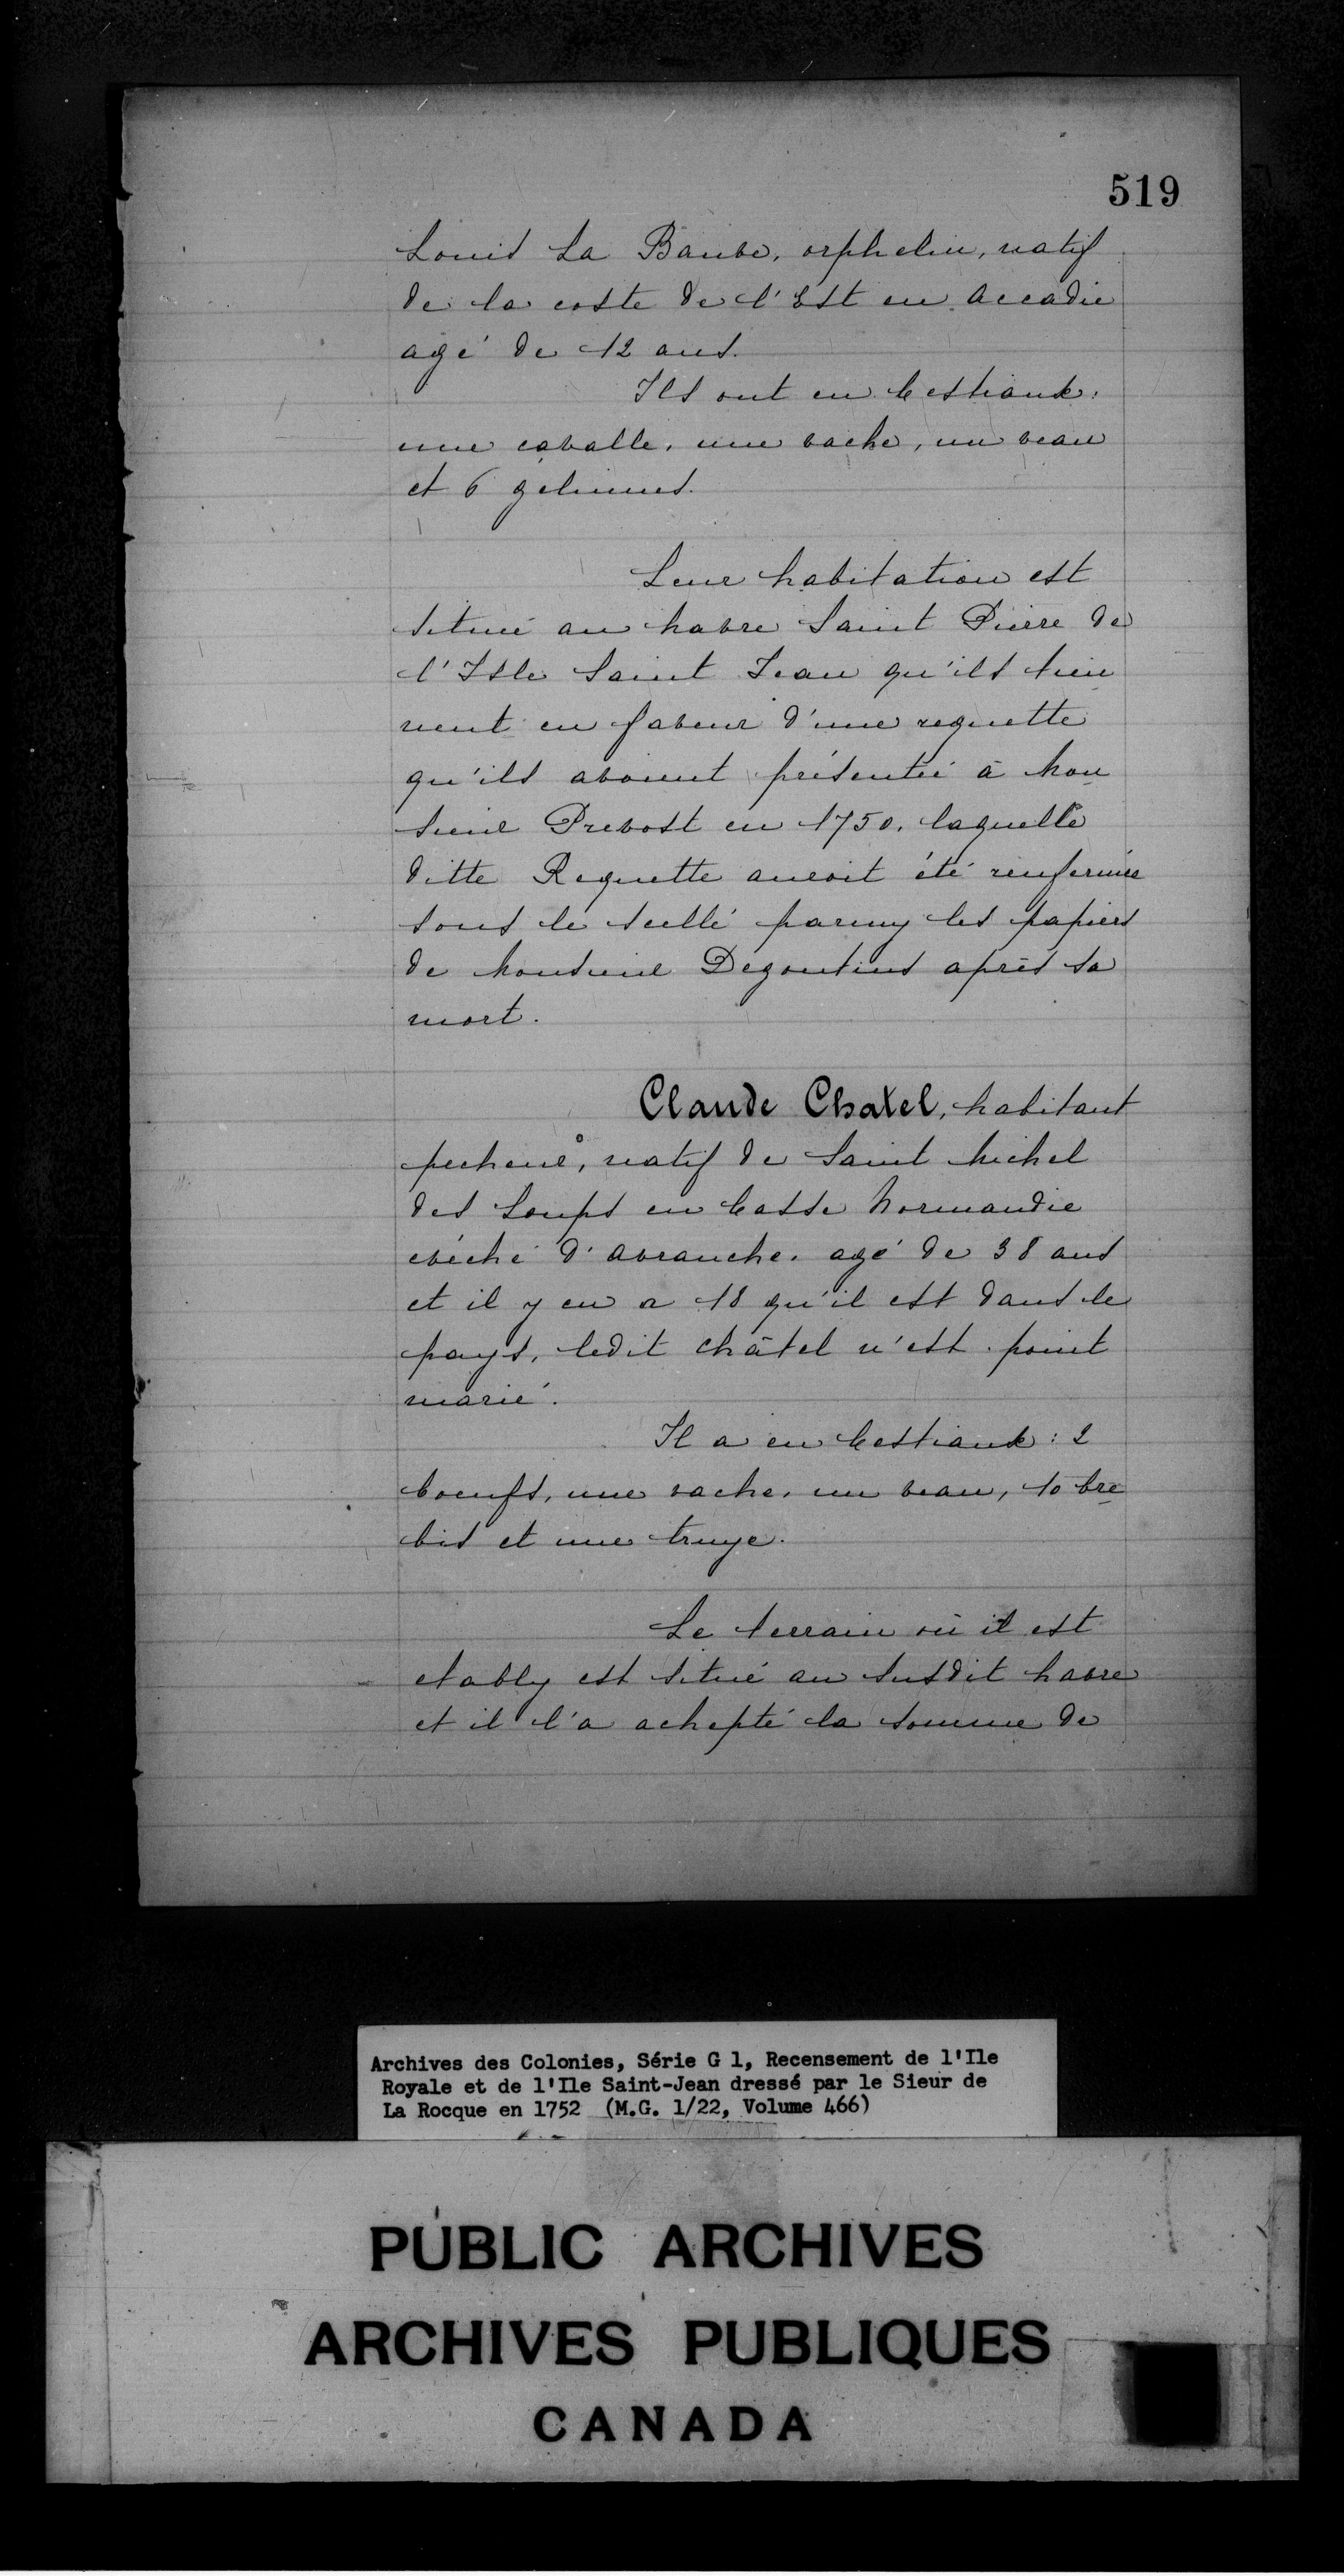 519
Louis La Bauve, orphelin, natif
de la coste de l'Est en Accadie
agé de 12 ans.
Ils ont en bestiaux:
une cavalle, une vache, un veau
et 6 gelinnes.
Leur habitation est
située au havre Saint Pierre de
l'Isle Saint Jean qu'ils tien
nent en faveur d'une requette
qu'ils avoient présentée à Mon
sieur Prevost en 1750, laquelle
ditte Requette auroit été renfermée
sous le scellé parmy les papiers
de Monsieur Degoutins après sa
mort.
Claude Chatel, habitant
pecheur, natif de Saint Michel
des Loups en basse Normandie
evéché d'Avranche, agé de 38 ans
et il y en a 18 qu'il est dans le
pays, ledit Châtel n'est point
marié.
Il a en bestiaux: 2
boeufs, une vache, un veau, 10 bre
bis et une truye.
Le terrain où il est
etably est situé au susdit havre
et il l'a achepté la somme de
Archives des Colonies, Série G 1, Recensement de l'Ile
Royale et de l'Ile Saint-Jean dressé par le Sieur de
La Rocque en 1752 (M.G. 1/22, Volume 466)
PUBLIC ARCHIVES
ARCHIVES PUBLIQUES
CANADA